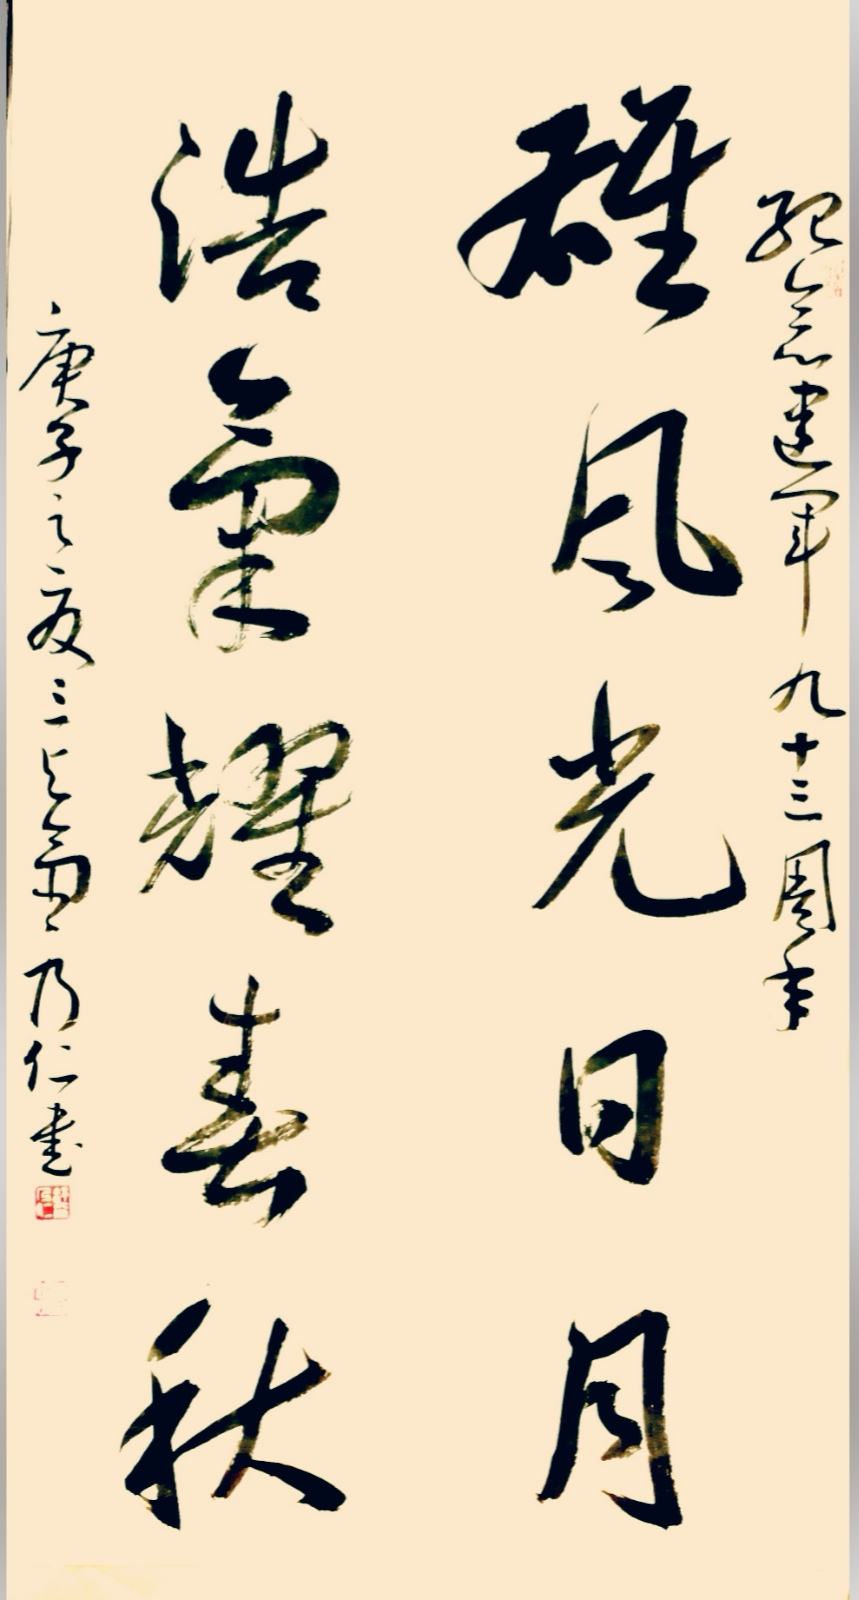 纪念建军九十三周年
雄风光日月
浩氣耀春秋
庚子之夏三乃仁书